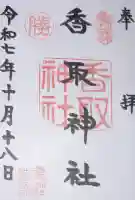 奉拝
香取神社
香取神社
令和七年十月十八日